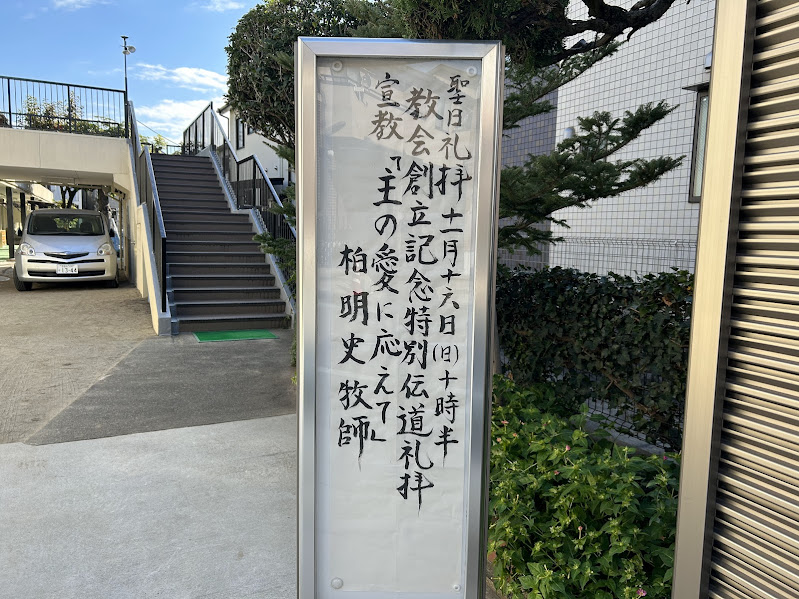 聖日礼拝 十一月十六日(日)十時半
教会創立記念特別伝道礼拝
宣教「主の愛に応えて」
柏明史牧師